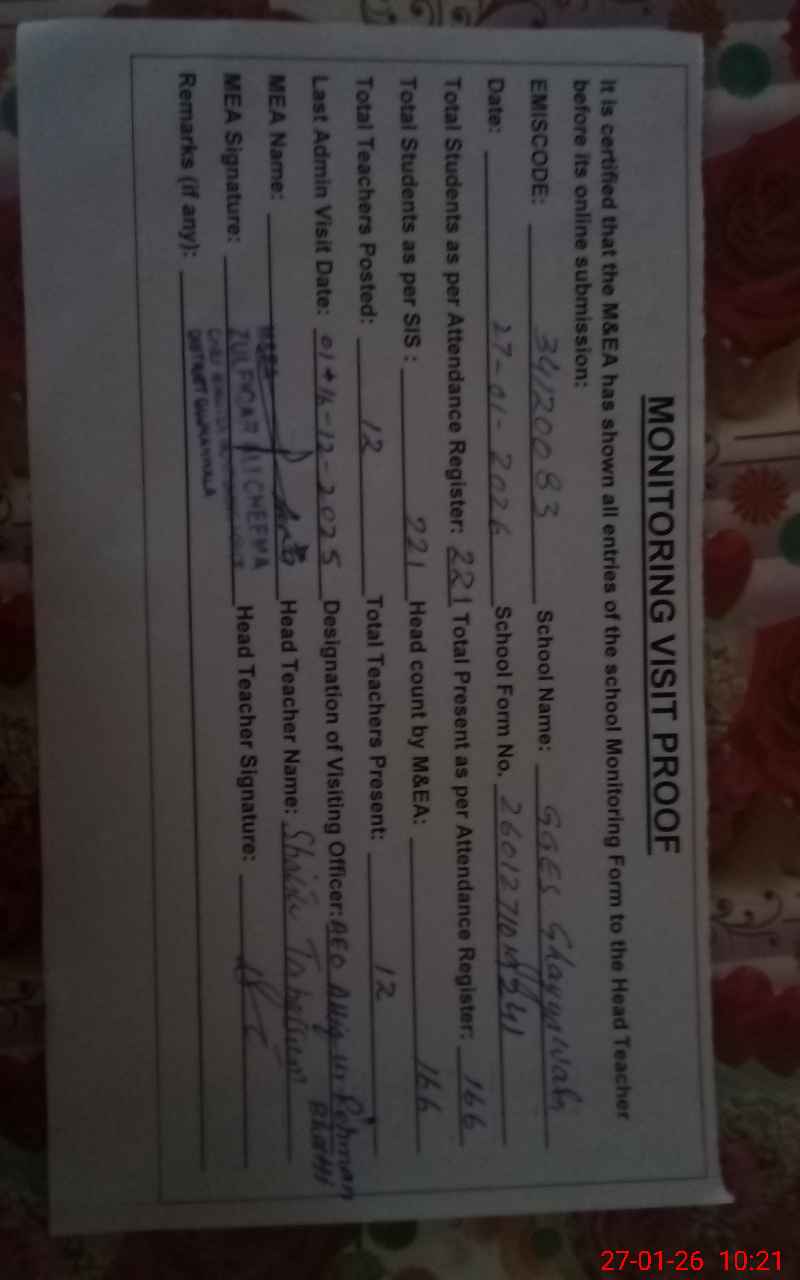 MONITORING VISIT PROOF
It is certified that the M&EA has shown all entries of the school Monitoring Form to the Head Teacher
before its online submission:
EMISCODE: 34120083 School Name: GGES
Date: 27-01-2026 School Form No.
Total Students as per Attendance Register: 221 Total Present as per Attendance Register: 166
Total Students as per SIS : 221 Head count by M&EA: 166
Total Teachers Posted: 12 Total Teachers Present: 12
Last Admin Visit Date: -12-2025 Designation of Visiting Officer: AEO ur Rehman
Bhatti
MEA Name: Head Teacher Name:
MEA Signature: ZULFIQAR ALI CHEEMA Head Teacher Signature:
Remarks (if any): DISTRICT GUJRANWALA
27-01-26 10:21